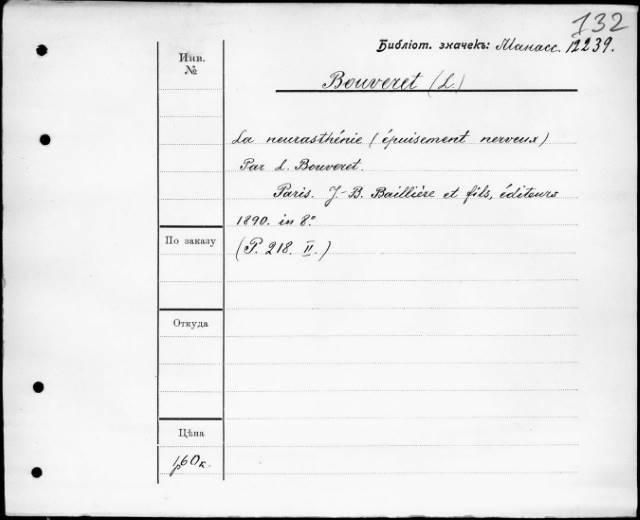 132
Библіот. значекъ: Манасс. 12239.
Инв.
№
Bouveret (L.)
La neurasthénie (épuisement nerveux)
Par L. Bouveret.
Paris. J.-B. Baillière et fils, éditeurs
1890. in 8.°
(P. 218. II.)
По заказу
Откуда
Цѣна
1р60к.